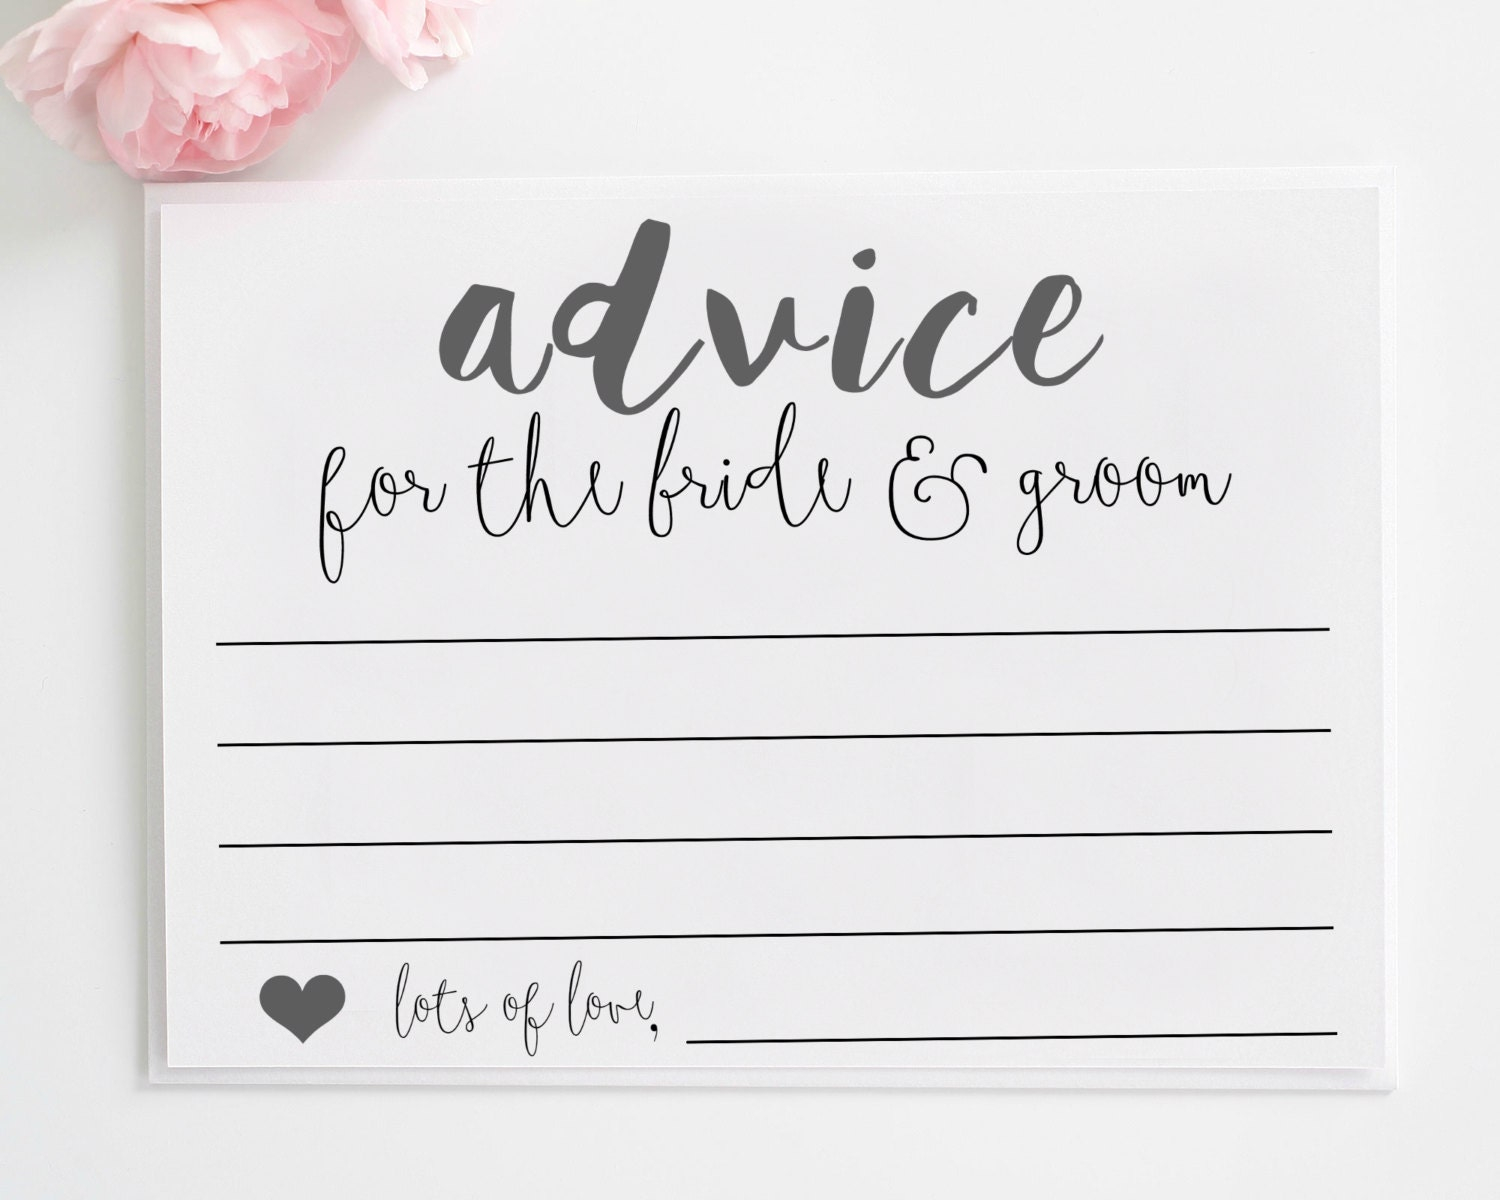 advice
for the bride & groom
lots of love,